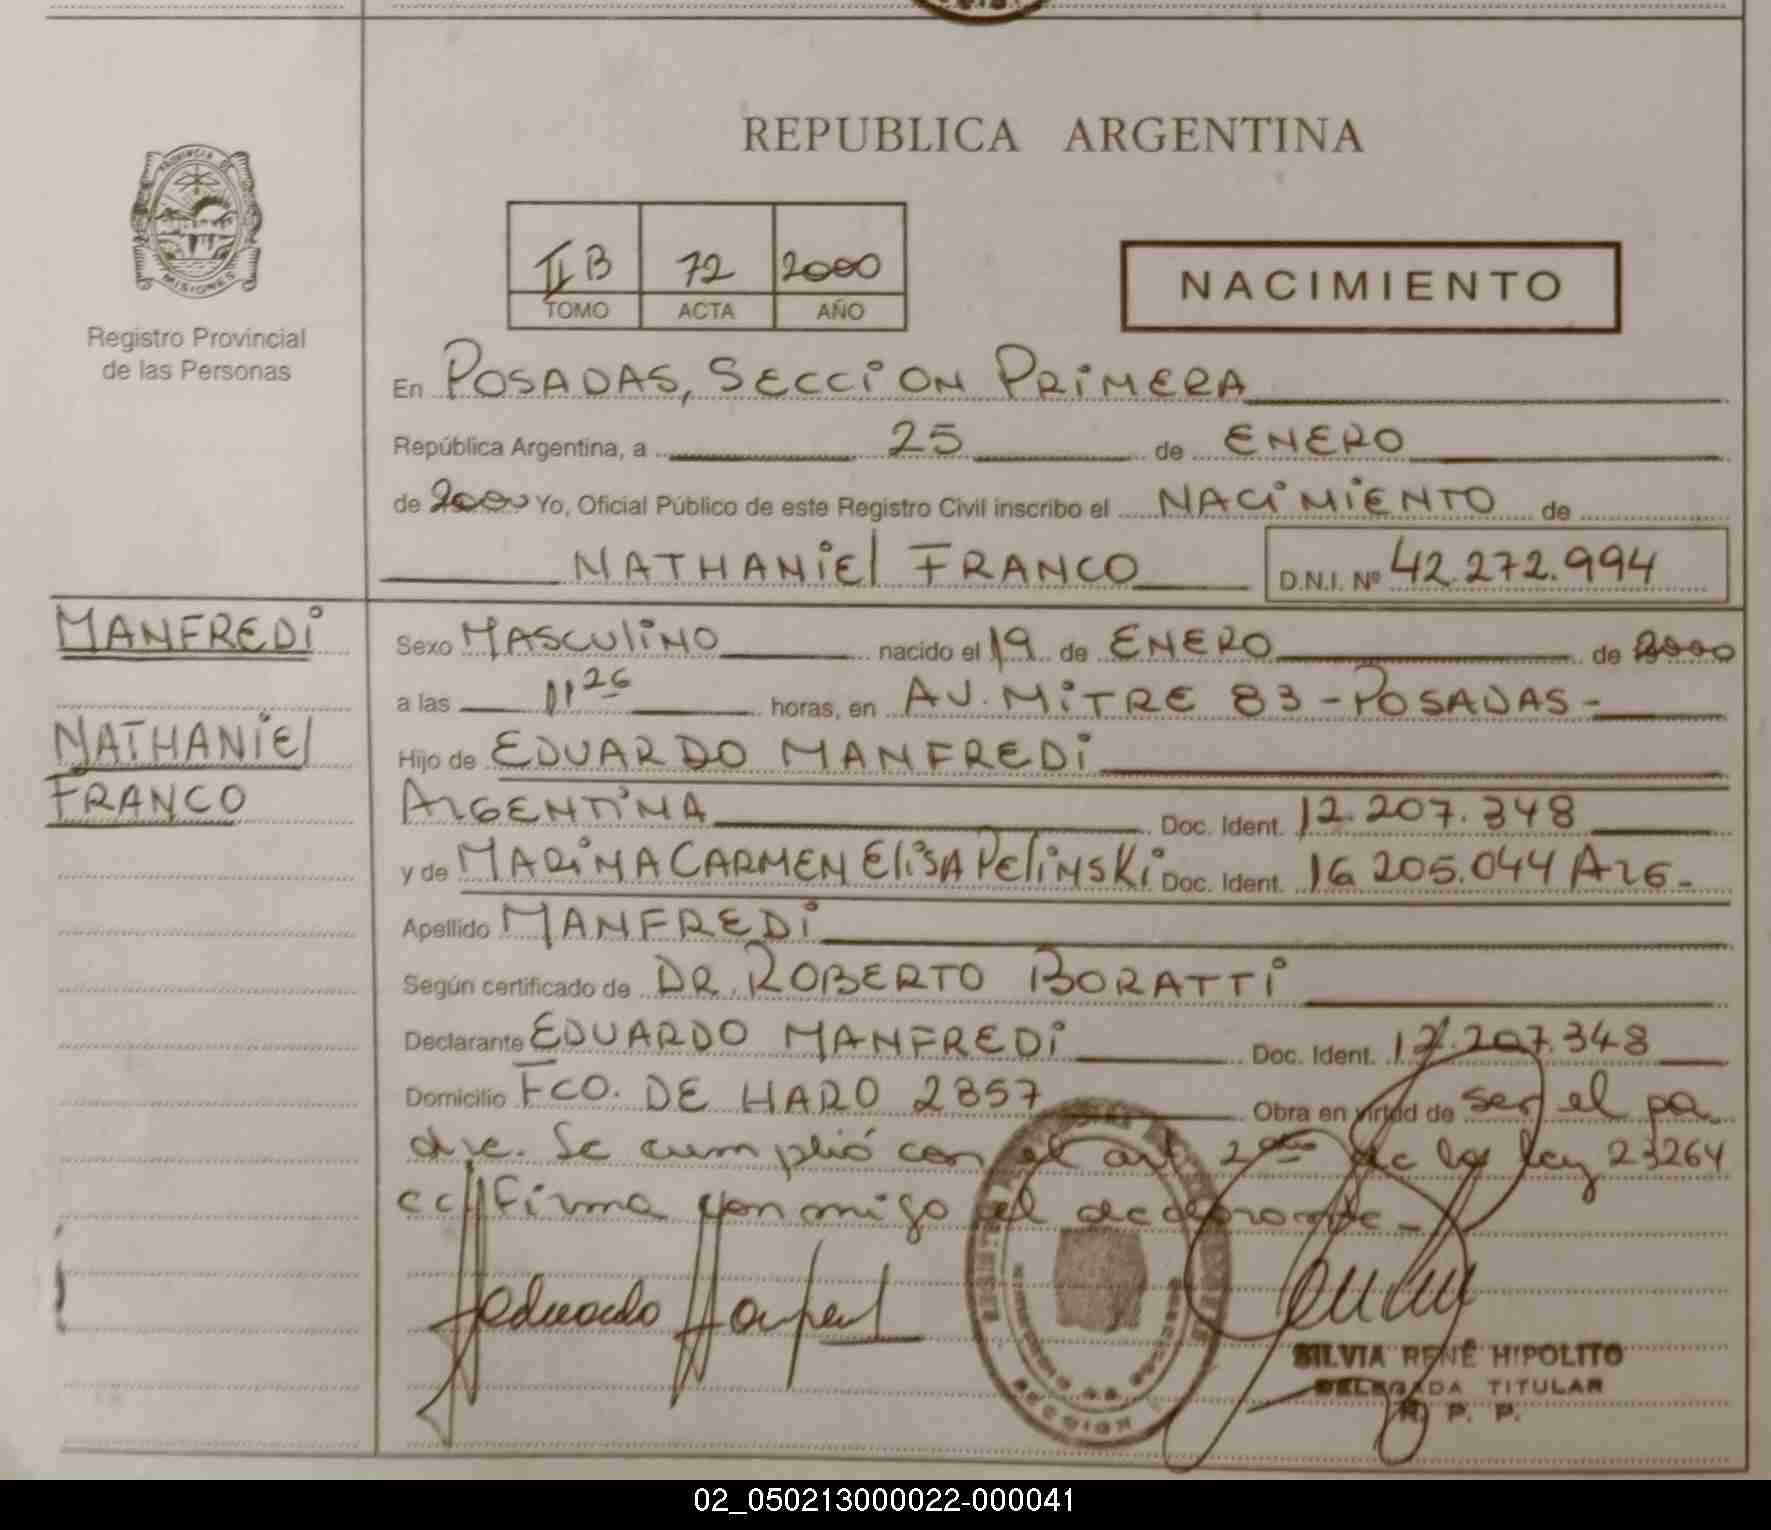 REPUBLICA ARGENTINA
PROVINCIA DE
MISIONES
Registro Provincial
de las Personas
II B 72 2000
TOMO ACTA AÑO
NACIMIENTO
En POSADAS, SECCION PRIMERA
República Argentina, a 25 de ENERO
de 2000 Yo, Oficial Público de este Registro Civil inscribo el NACIMIENTO de
NATHANIEL FRANCO D.N.I. Nº 42.272.994
MANFREDI
NATHANIEL
FRANCO
Sexo MASCULINO nacido el 19 de ENERO de 2000
a las 11 26 horas, en AV. MITRE 83 - POSADAS -
Hijo de EDUARDO MANFREDI
ARGENTINA Doc. Ident. 12.207.348
y de MARINA CARMEN ELISA PELINSKI Doc. Ident. 16.205.044 ARG.-
Apellido MANFREDI
Según certificado de DR. ROBERTO BORATTI
Declarante EDUARDO MANFREDI Doc. Ident. 12.207.348
Domicilio FCO. DE HARO 2857 Obra en virtud de ser el pa
dre. Se cumplió con el art 2do de la ley 23264
Firma conmigo el declarante.-
Eduardo
SILVIA RENÉ HIPOLITO
DELEGADA TITULAR
R. P. P.
SECCION
02_050213000022-000041